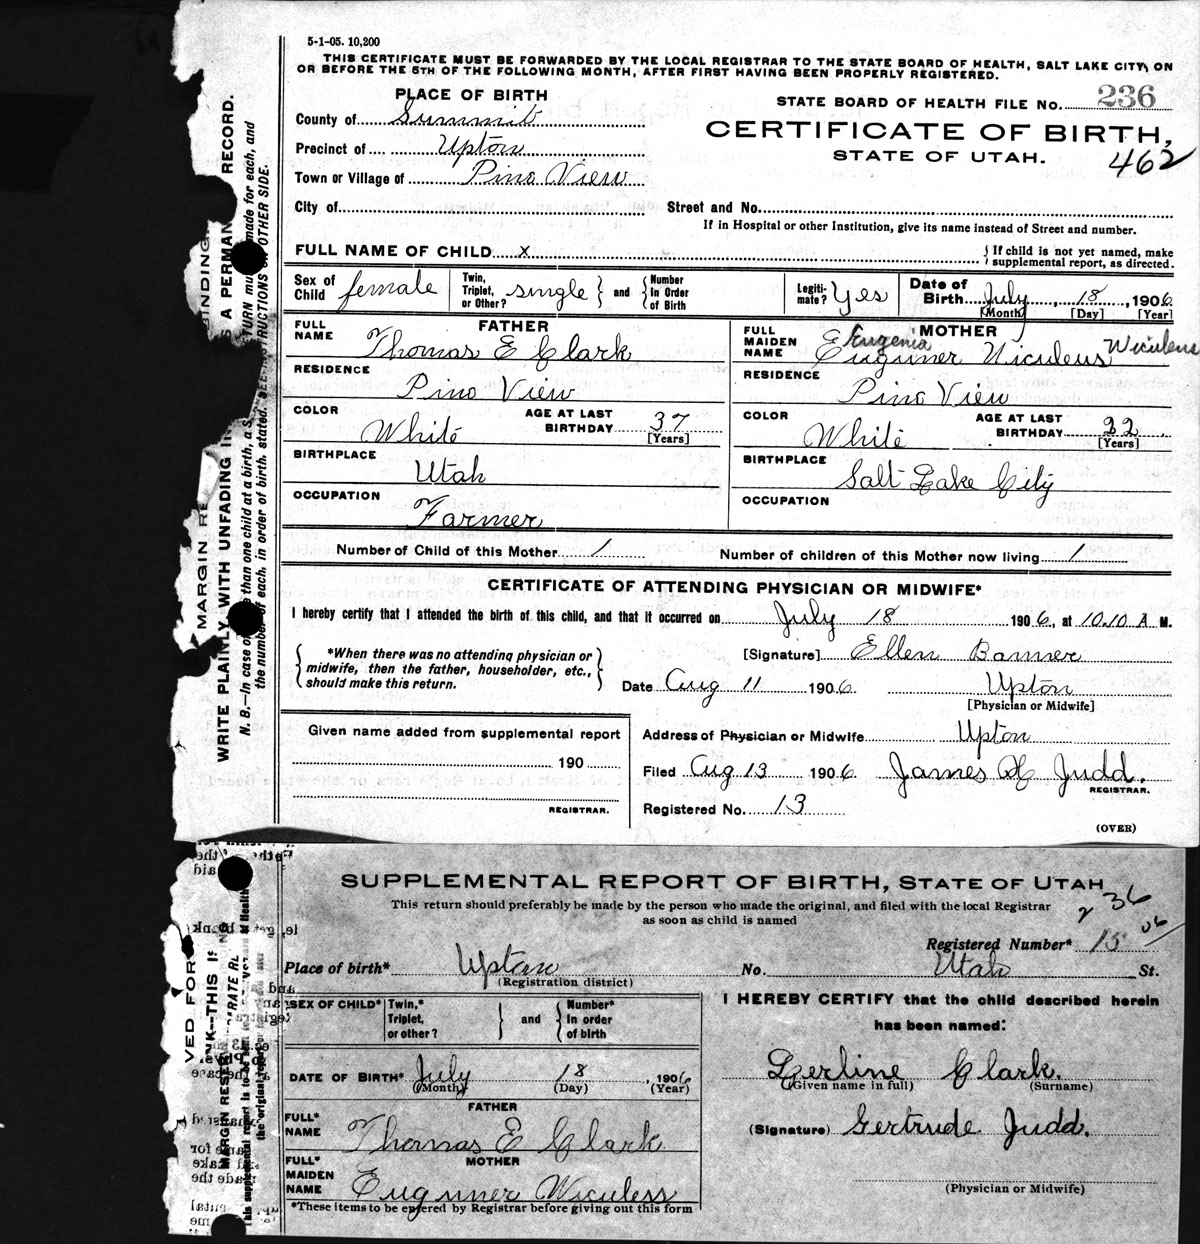 5-1-05. 10,200
THIS CERTIFICATE MUST BE FORWARDED BY THE LOCAL REGISTRAR TO THE STATE BOARD OF HEALTH, SALT LAKE CITY, ON
OR BEFORE THE 5TH OF THE FOLLOWING MONTH, AFTER FIRST HAVING BEEN PROPERLY REGISTERED.
PLACE OF BIRTH
STATE BOARD OF HEALTH FILE No. 236
County of Summit
CERTIFICATE OF BIRTH,
Precinct of Upton
STATE OF UTAH.
462
Town or Village of Pino View
City of
Street and No.
If in Hospital or other Institution, give its name instead of Street and number.
FULL NAME OF CHILD x
If child is not yet named, make supplemental report, as directed.
Sex of Child female
Twin, Triplet, or Other? single and Number In Order of Birth
Legiti- mate? Yes
Date of Birth July 18, 1906
[Month] [Day] [Year]
FATHER
FULL NAME Thomas E Clark
RESIDENCE Pino View
COLOR White AGE AT LAST BIRTHDAY 37 [Years]
BIRTHPLACE Utah
OCCUPATION Farmer
MOTHER
FULL MAIDEN NAME Eugenia Wiculens
RESIDENCE Pino View
COLOR White AGE AT LAST BIRTHDAY 22 [Years]
BIRTHPLACE Salt Lake City
OCCUPATION
Number of Child of this Mother 1 Number of children of this Mother now living 1
CERTIFICATE OF ATTENDING PHYSICIAN OR MIDWIFE*
I hereby certify that I attended the birth of this child, and that it occurred on July 18 1906, at 10.10 A M.
*When there was no attending physician or
midwife, then the father, householder, etc.,
should make this return.
[Signature] Ellen Bamer
Date Aug 11 1906 Upton
[Physician or Midwife]
Given name added from supplemental report
190
REGISTRAR.
Address of Physician or Midwife Upton
Filed Aug 13 1906 James H Judd.
REGISTRAR.
Registered No. 13
(OVER)
SUPPLEMENTAL REPORT OF BIRTH, STATE OF UTAH
This return should preferably be made by the person who made the original, and filed with the local Registrar
as soon as child is named
236
06
Registered Number* 15
Place of birth* Upton No. Utah St.
(Registration district)
SEX OF CHILD* Twin,* Triplet, or other? and Number* In order of birth
DATE OF BIRTH* July 18, 1906
(Month) (Day) (Year)
FATHER
FULL* NAME Thomas E Clark
MOTHER
FULL* MAIDEN NAME Euguner Wiculess
*These items to be entered by Registrar before giving out this form
I HEREBY CERTIFY that the child described herein
has been named:
Lerline Clark.
(Given name in full) (Surname)
(Signature) Gertrude Judd.
(Physician or Midwife)